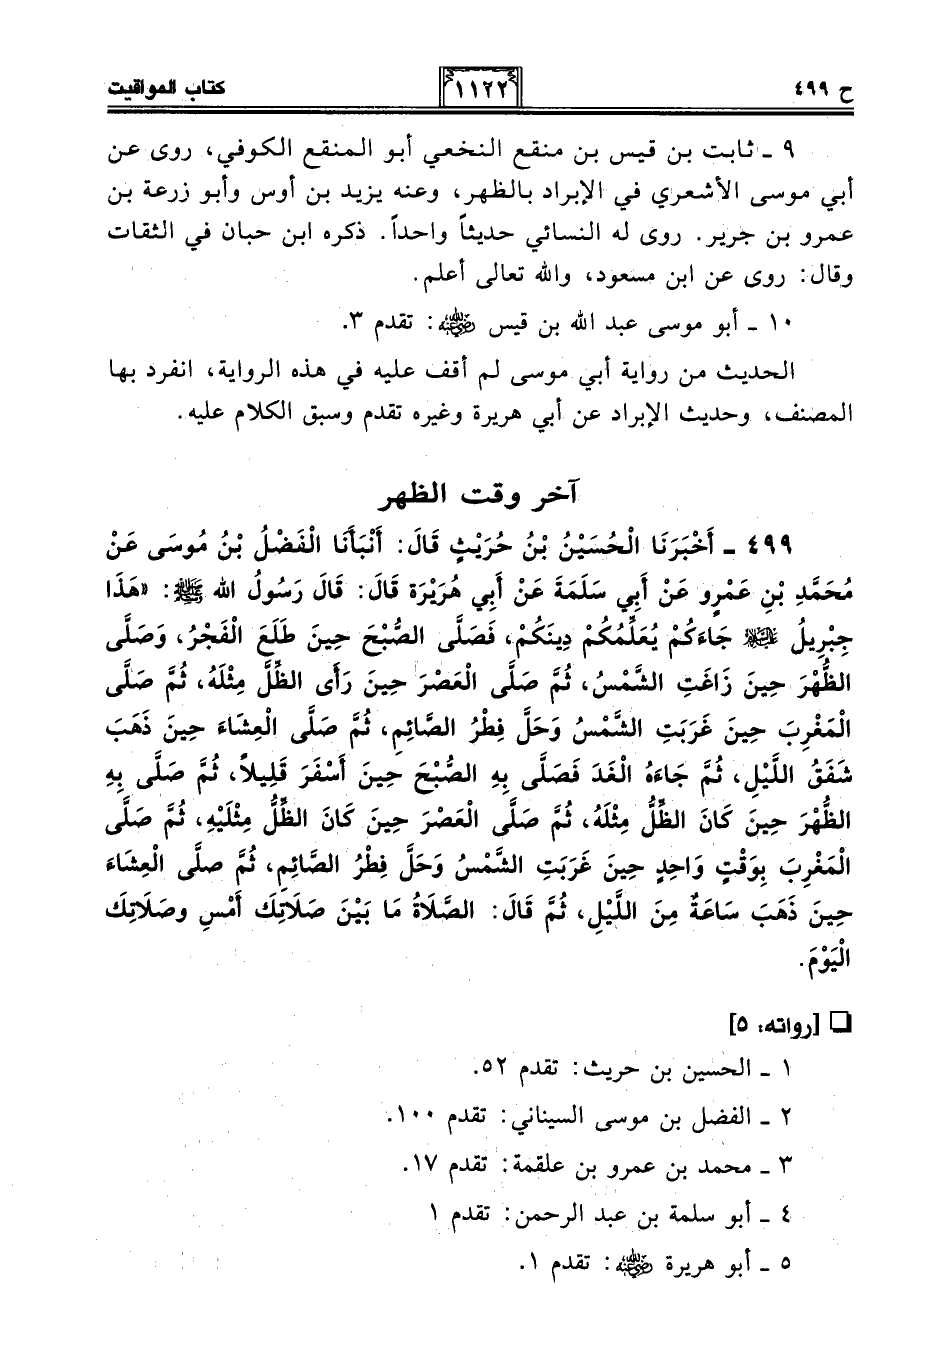 ح ٤٩٩ ١١٢٢ كتاب المواقيت
٩ ـ ثابت بن قيس بن منقع النخعي أبو المنقع الكوفي، روى عن
أبي موسى الأشعري في الإبراد بالظهر، وعنه يزيد بن أوس وأبو زرعة بن
عمرو بن جرير. روى له النسائي حديثاً واحداً. ذكره ابن حبان في الثقات
وقال: روى عن ابن مسعود، والله تعالى أعلم.
١٠ ـ أبو موسى عبد الله بن قيس رضي الله عنه: تقدم ٣.
الحديث من رواية أبي موسى لم أقف عليه في هذه الرواية، انفرد بها
المصنف، وحديث الإبراد عن أبي هريرة وغيره تقدم وسبق الكلام عليه.
آخر وقت الظهر
٤٩٩ ـ أَخْبَرَنَا الْحُسَيْنُ بْنُ حُرَيْثٍ قَالَ: أَنْبَأَنَا الْفَضْلُ بْنُ مُوسَى عَنْ
مُحَمَّدِ بْنِ عَمْرٍو عَنْ أَبِي سَلَمَةَ عَنْ أَبِي هُرَيْرَةَ قَالَ: قَالَ رَسُولُ الله ﷺ: «هَذَا
جِبْرِيلُ عليه السلام جَاءَكُمْ يُعَلِّمُكُمْ دِينَكُمْ، فَصَلَّى الصُّبْحَ حِينَ طَلَعَ الْفَجْرُ، وَصَلَّى
الظُّهْرَ حِينَ زَاغَتِ الشَّمْسُ، ثُمَّ صَلَّى الْعَصْرَ حِينَ رَأَى الظِّلَّ مِثْلَهُ، ثُمَّ صَلَّى
الْمَغْرِبَ حِينَ غَرَبَتِ الشَّمْسُ وَحَلَّ فِطْرُ الصَّائِمِ، ثُمَّ صَلَّى الْعِشَاءَ حِينَ ذَهَبَ
شَفَقُ اللَّيْلِ، ثُمَّ جَاءَهُ الْغَدَ فَصَلَّى بِهِ الصُّبْحَ حِينَ أَسْفَرَ قَلِيلاً، ثُمَّ صَلَّى بِهِ
الظُّهْرَ حِينَ كَانَ الظِّلُّ مِثْلَهُ، ثُمَّ صَلَّى الْعَصْرَ حِينَ كَانَ الظِّلُّ مِثْلَيْهِ، ثُمَّ صَلَّى
الْمَغْرِبَ بِوَقْتٍ وَاحِدٍ حِينَ غَرَبَتِ الشَّمْسُ وَحَلَّ فِطْرُ الصَّائِمِ، ثُمَّ صلَّى الْعِشَاءَ
حِينَ ذَهَبَ سَاعَةٌ مِنَ اللَّيْلِ، ثُمَّ قَالَ: الصَّلَاةُ مَا بَيْنَ صَلَاتِكَ أَمْسِ وصَلَاتِكَ
الْيَوْمَ.
❑ [رواته: ٥]
١ ـ الحسين بن حريث: تقدم ٥٢.
٢ ـ الفضل بن موسى السيناني: تقدم ١٠٠.
٣ ـ محمد بن عمرو بن علقمة: تقدم ١٧.
٤ ـ أبو سلمة بن عبد الرحمن: تقدم ١
٥ ـ أبو هريرة رضي الله عنه: تقدم ١.